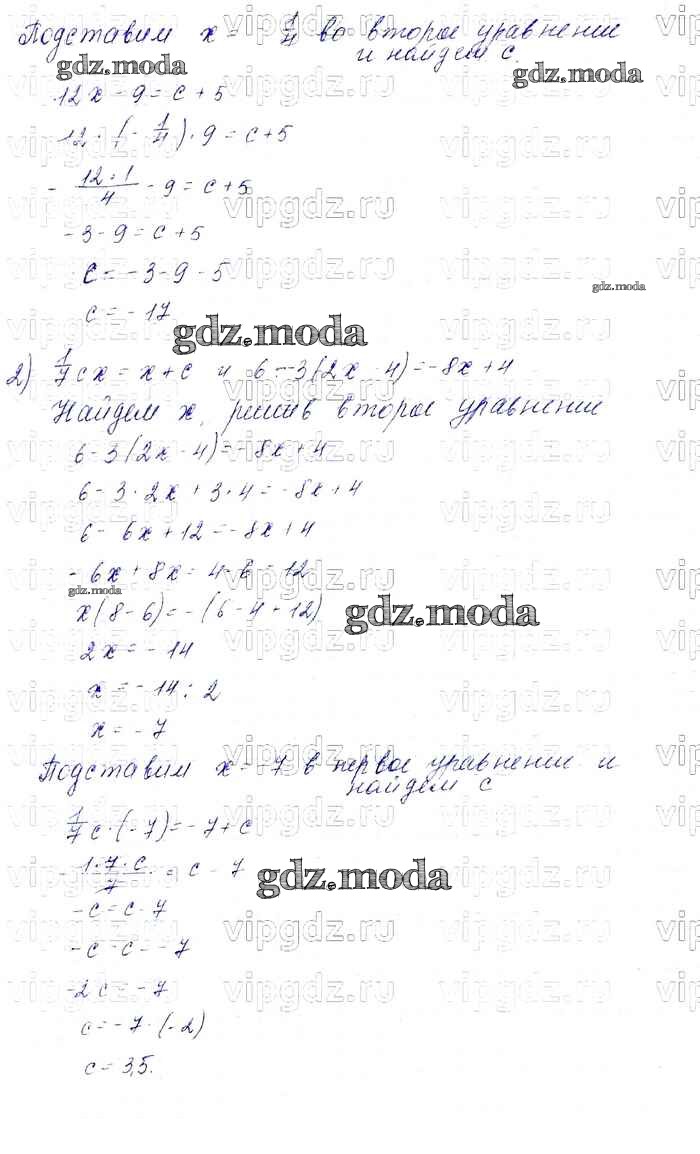 Подставим x = - 1/4 во второе уравнение
и найдем c.
gdz.moda
gdz.moda
12x - 9 = c + 5
12 · (- 1/4) · 9 = c + 5
- 12·1/4 - 9 = c + 5
-3 - 9 = c + 5
c = -3 - 9 - 5
gdz.moda
c = -17
gdz.moda
2) 1/7 cx = x + c и 6 - 3(2x - 4) = -8x + 4
Найдем x, решив второе уравнение
6 - 3(2x - 4) = -8x + 4
6 - 3 · 2x + 3 · 4 = -8x + 4
6 - 6x + 12 = -8x + 4
-6x + 8x = 4 - 6 - 12
gdz.moda
x(8 - 6) = -(6 - 4 + 12)
gdz.moda
2x = -14
x = -14 : 2
x = -7
Подставим x = -7 в первое уравнение и
найдем c
1/7 c · (-7) = -7 + c
- 1·7·c/7 = c - 7
gdz.moda
-c = c - 7
-c - c = -7
-2c = -7
c = -7 · (-2)
c = 3,5.
vipgdz.ru